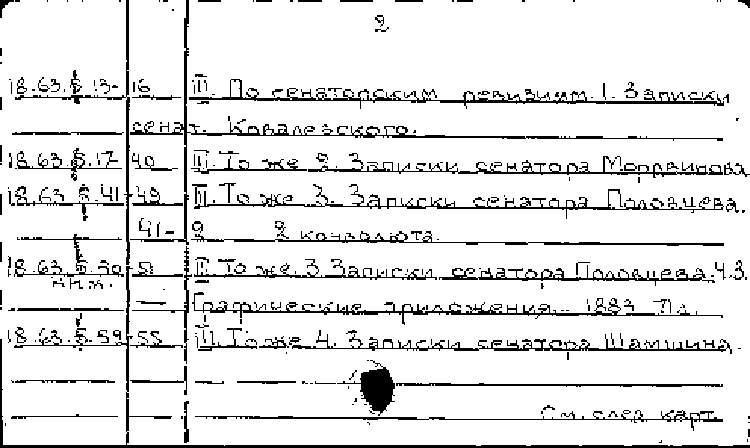 2
18.63.5.13-16 II. По сенаторским ревизиям. 1. Записки
сенат. Ковалевского.
18.63.5.17-40 II. То же 2. Записки сенатора Мордвинова
18.63.5.41-49 II. То же 3. Записки сенатора Половцева.
41-2 2 конволюта.
18.63.5.50-51 II. То же. 3 Записки сенатора Половцева. Ч.3.
книж. — Графические приложения. 1883 71 л.
18.63.5.52-55 II. То же 4. Записки сенатора Шамшина.
См. след. карт.